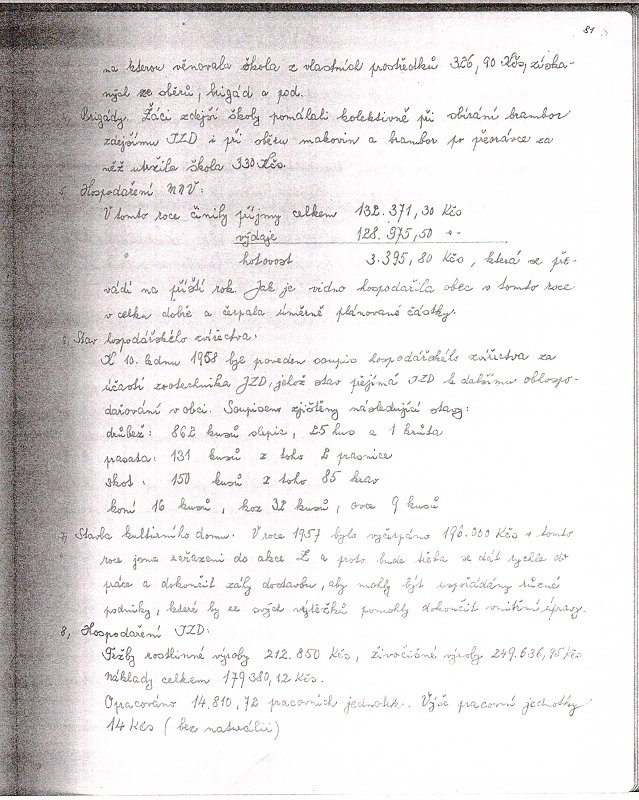 51
na kterou věnovala škola z vlastních prostředků 326,90 Kčs, získa-
ných ze sběrů, brigád a pod.
Brigády. Žáci zdejší školy pomáhali kolektivně při sbírání brambor
zdejšímu JZD i při sběru makovin a brambor po přeorávce za
něž utržila škola 330 Kčs.
Hospodaření MNV:
V tomto roce činily příjmy celkem 132.371,30 Kčs
výdaje 128.975,50 "-
hotovost 3.395,80 Kčs, která se pře-
vádí na příští rok. Jak je vidno hospodařila obec v tomto roce
v celku dobře a čerpala úměrně plánované částky.
Stav hospodářského zvířectva.
K 10. lednu 1958 byl proveden soupis hospodářského zvířectva za
účasti zootechnika JZD, jehož stav přejímá JZD k dalšímu obhospo-
dařování v obci. Soupisem zjištěny následující stavy:
drůbež: 862 kusů slepic, 25 hus a 1 krůta
prasata: 131 kusů z toho 2 prasnice
skot: 150 kusů z toho 85 krav
koní 16 kusů, koz 32 kusů, ovce 9 kusů
7, Stavba kulturního domu. V roce 1957 bylo vyčerpáno 196.000 Kčs v tomto
roce jsme zařazeni do akce Z a proto bude třeba se dát rychle do
práce a dokončit sály dostavbu, aby mohly být uspořádány různé
podniky, které by ze svých výtěžků pomohly dokončit vnitřní úpravy.
8, Hospodaření JZD:
Tržby rostlinné výroby 212.850 Kčs, živočišné výroby 249.636,95 Kčs
Náklady celkem 179380,12 Kčs.
Opracováno 14.810,72 pracovních jednotek. Výše pracovní jednotky
14 Kčs (bez naturálií)